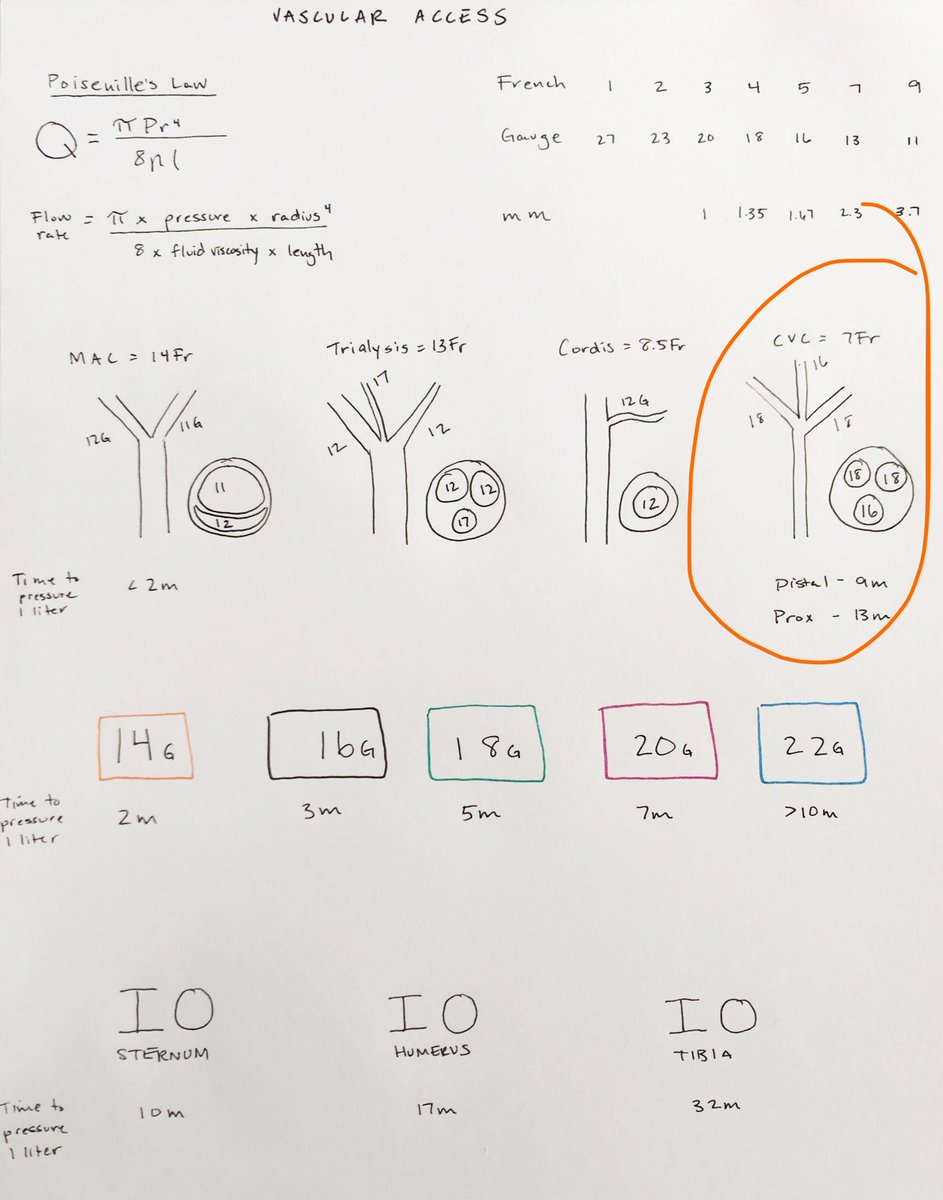 VASCULAR ACCESS
Poiseuille's Law
Q = πPr⁴
8ηl
Flow rate = π x pressure x radius⁴
8 x fluid viscosity x length
French 1 2 3 4 5 7 9
Gauge 27 23 20 18 16 13 11
mm 1 1.35 1.67 2.3 3.7
MAC = 14Fr
12G 11G
11
12
Trialysis = 13Fr
17
12 12
12 12
17
Cordis = 8.5Fr
12G
12
CVC = 7Fr
16
18 18
18 18
16
Time to
pressure
1 liter
< 2m
Distal - 9m
Prox - 13m
14G 16G 18G 20G 22G
Time to
pressure
1 liter
2m 3m 5m 7m >10m
IO IO IO
STERNUM HUMERUS TIBIA
Time to
pressure
1 liter
10m 17m 32m